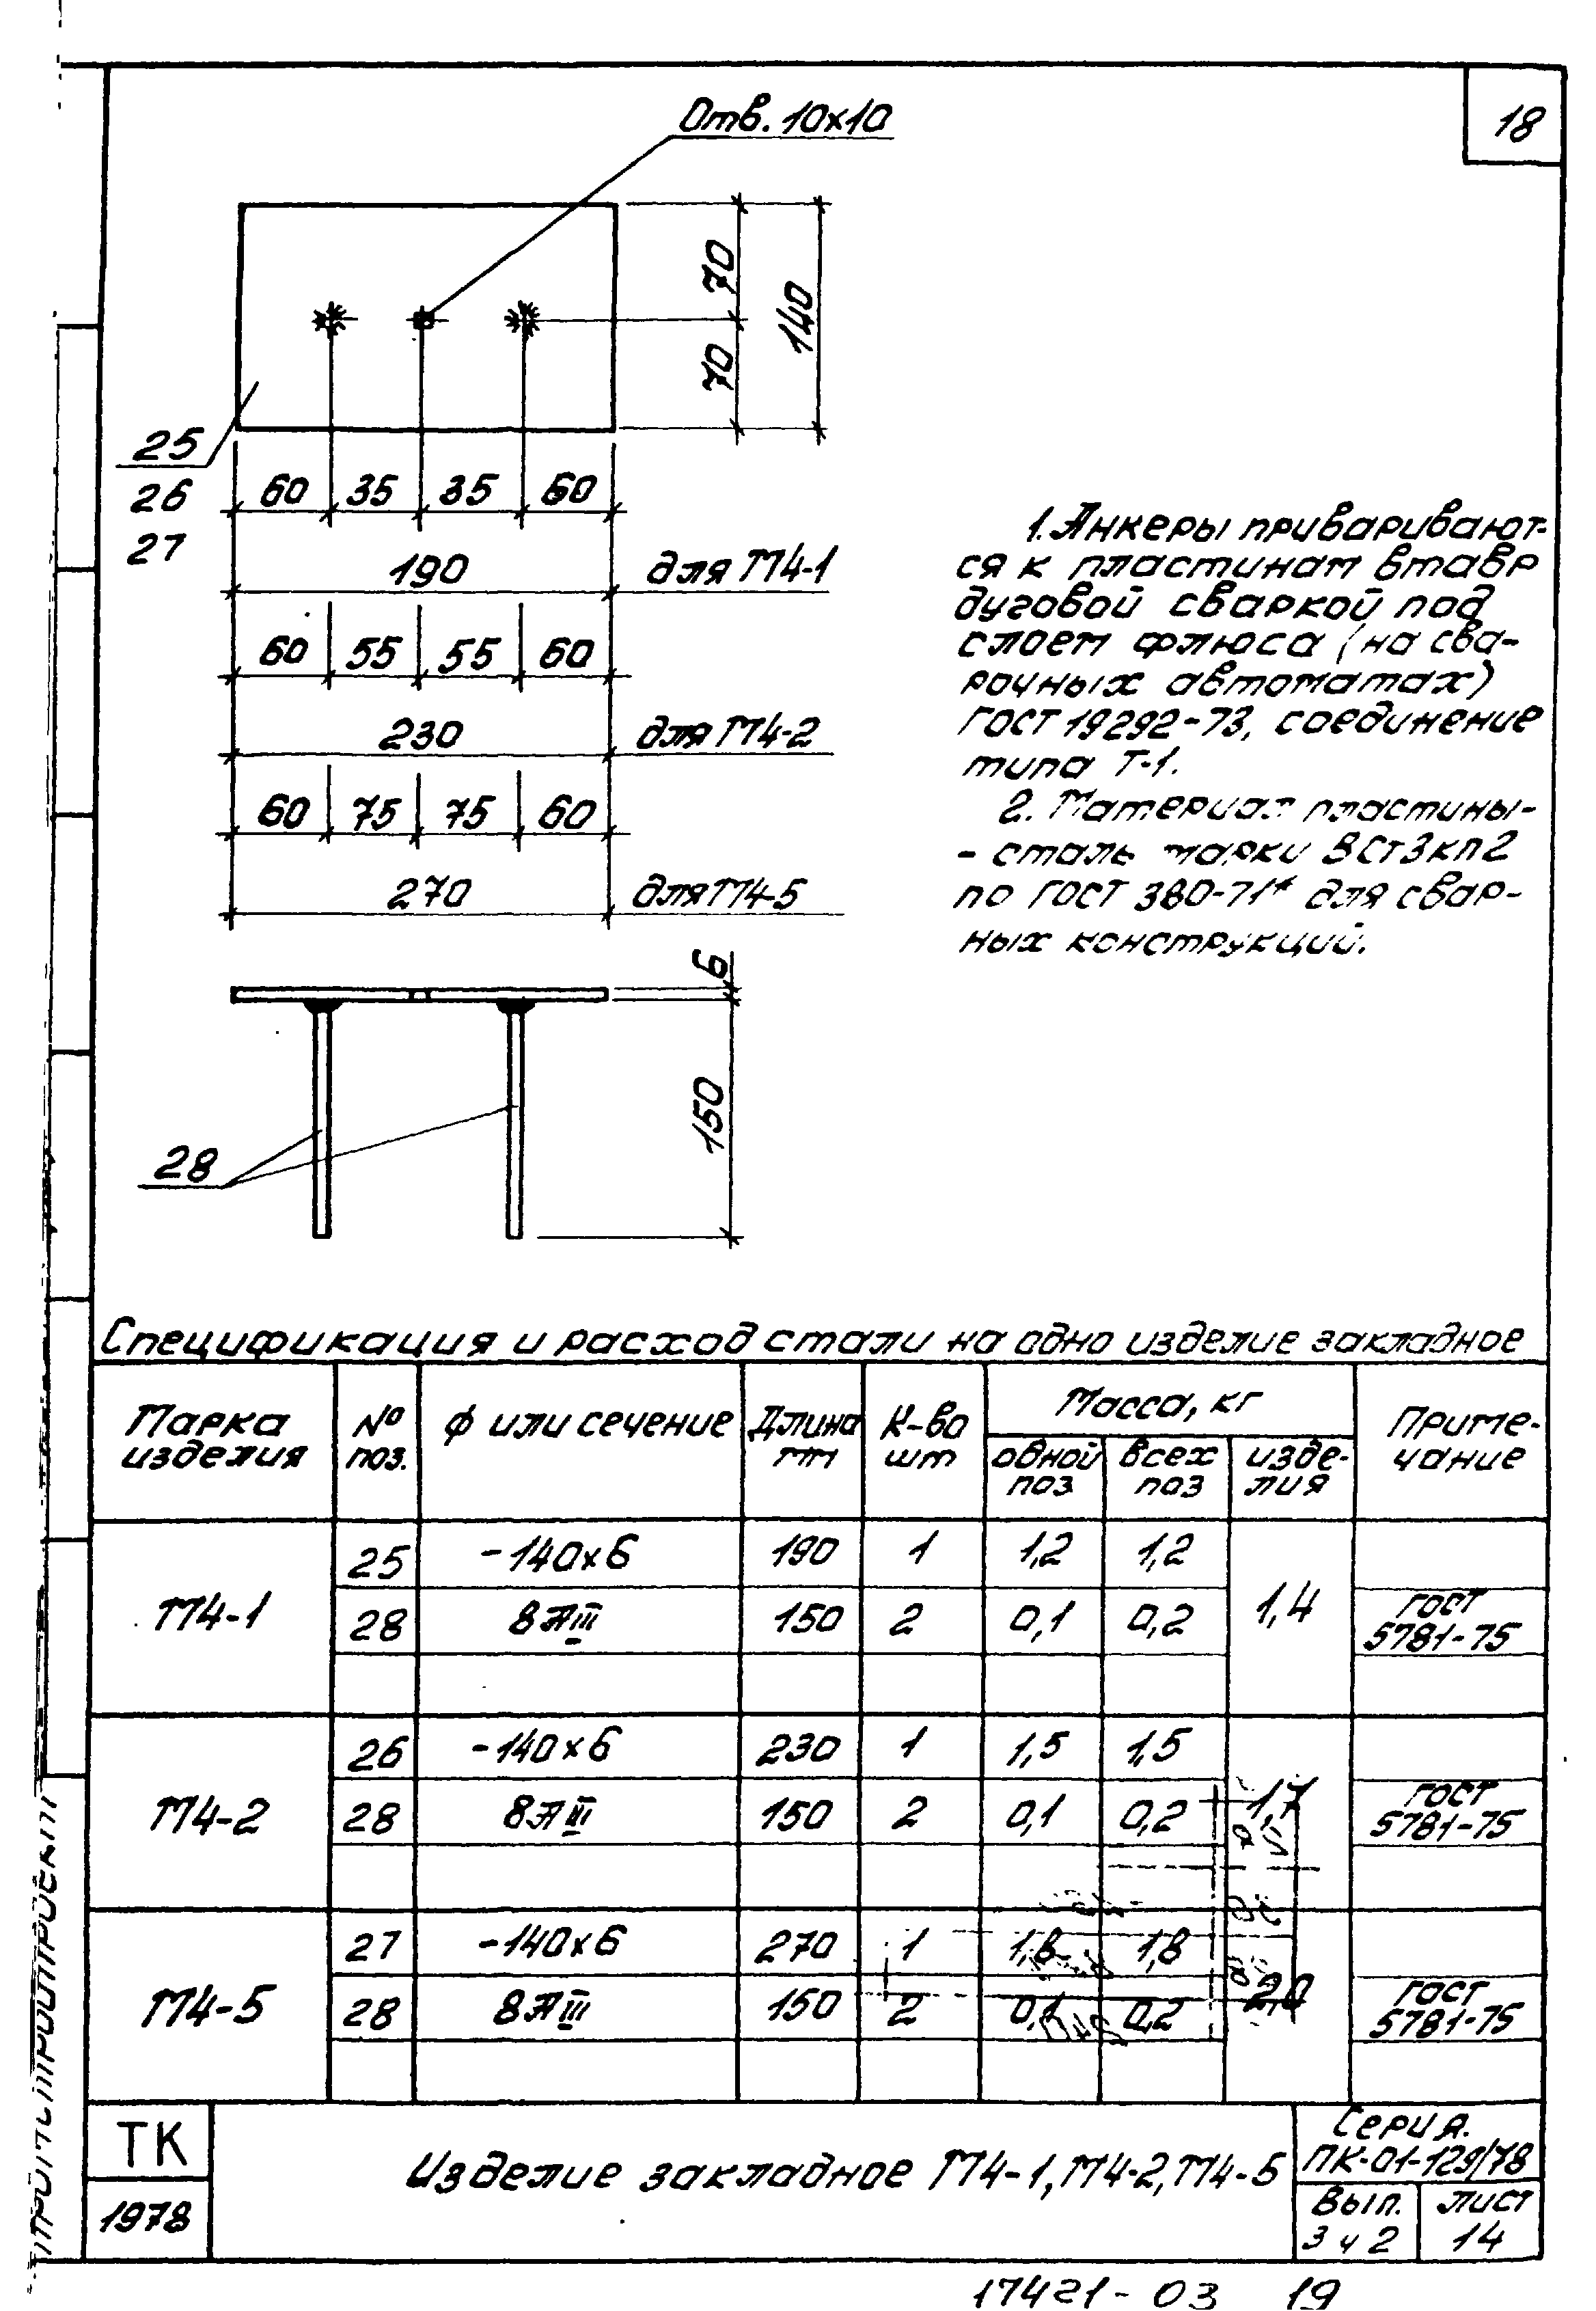 18
Отв. 10×10
70
70
140
25
26
27
60 35 35 60
190 для М4-1
60 55 55 60
230 для М4-2
60 75 75 60
270 для М4-5
1. Анкеры приваривают-
ся к пластинам втавр
дуговой сваркой под
слоем флюса (на сва-
рочных автоматах)
ГОСТ 19292-73, соединение
типа Т-1.
2. Материал пластины-
- сталь марки ВСт3кп2
по ГОСТ 380-71* для свар-
ных конструкций.
6
150
28
Спецификация и расход стали на одно изделие закладное
Марка изделия № поз. ф или сечение Длина мм К-во шт Масса, кг Приме-чание
одной поз. всех поз изде-лия
М4-1 25 -140×6 190 1 1,2 1,2 1,4
28 8АIII 150 2 0,1 0,2 ГОСТ 5781-75
М4-2 26 -140×6 230 1 1,5 1,5 1,7
28 8АIII 150 2 0,1 0,2 ГОСТ 5781-75
М4-5 27 -140×6 270 1 1,8 1,8 2,0
28 8АIII 150 2 0,1 0,2 ГОСТ 5781-75
ТК
1978
Изделие закладное М4-1, М4-2, М4-5
Серия.
ПК-01-129/78
Вып. Лист
3 ч 2 14
17421-03 19